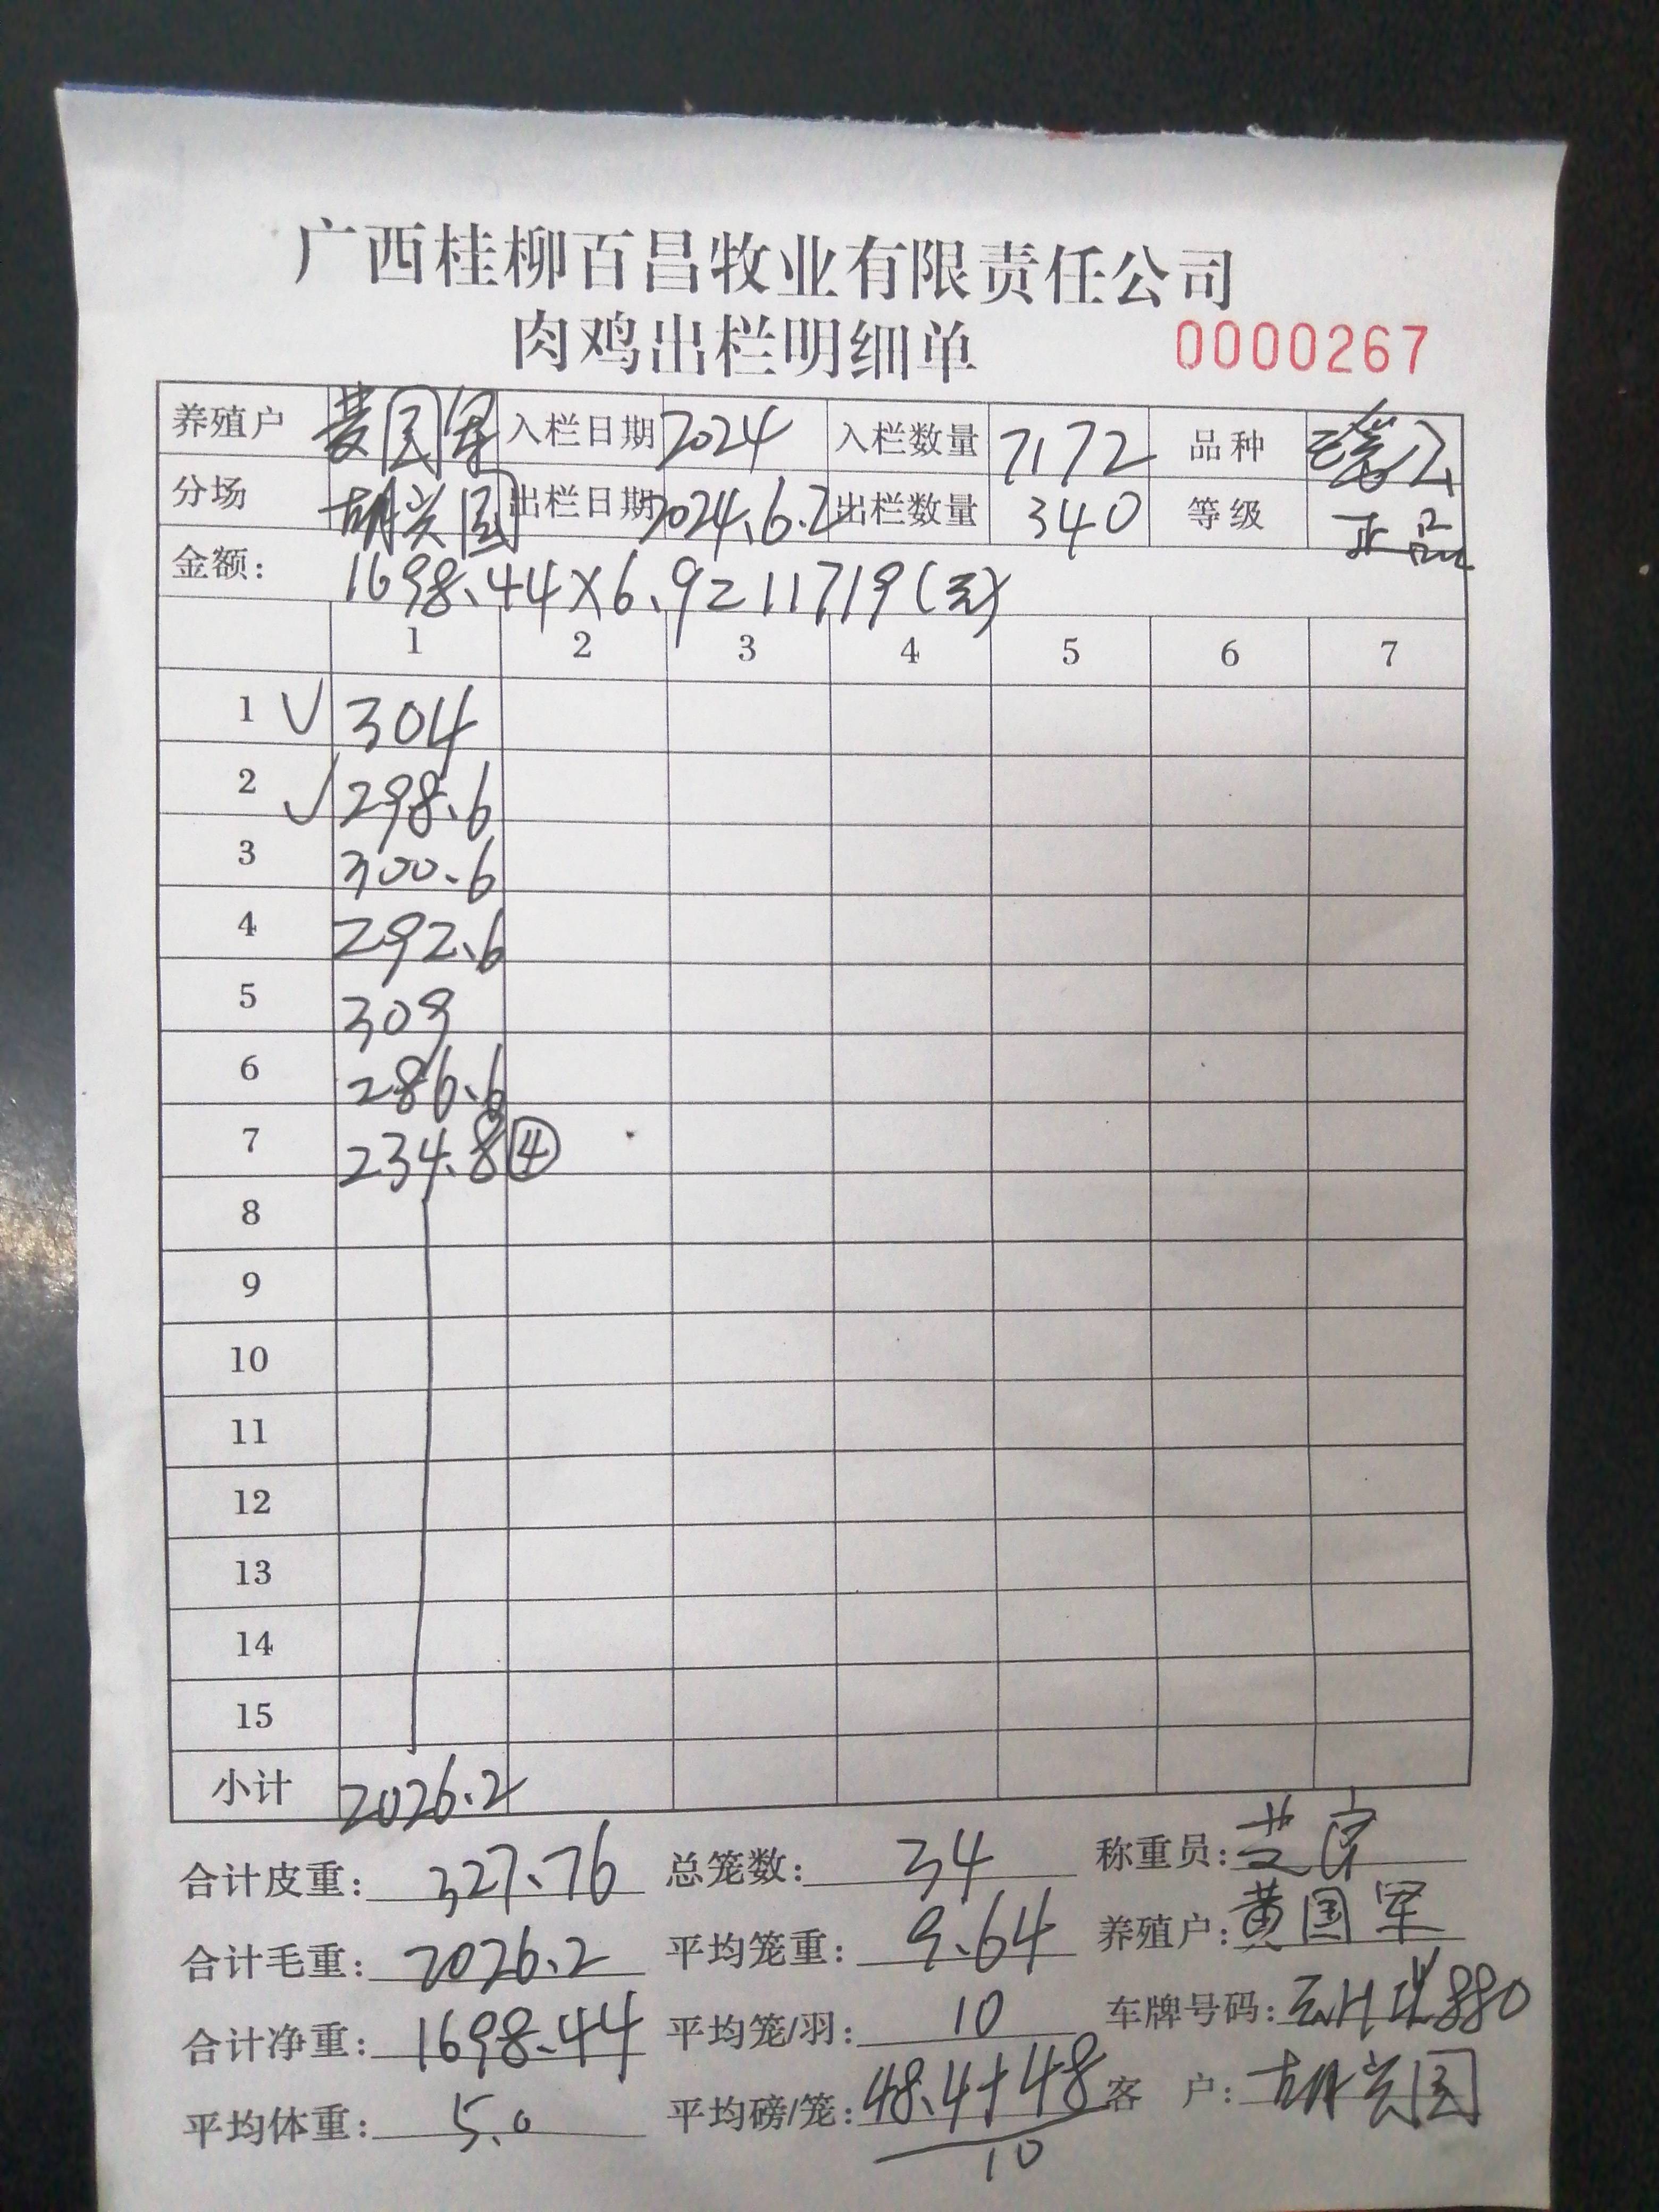 广西桂柳百昌牧业有限责任公司
肉鸡出栏明细单 0000267
养殖户 黄国军 入栏日期 2024 入栏数量 7172 品种 瑶公
分场 胡兴国 出栏日期 2024.6.2 出栏数量 340 等级 正品
金额: 1698.44×6.9=11719(元)
1 2 3 4 5 6 7
1 √ 304
2 √ 298.6
3 300.6
4 292.6
5 309
6 286.6
7 234.8 ④
8
9
10
11
12
13
14
15
小计 2026.2
合计皮重: 327.76 总笼数: 34 称重员:
合计毛重: 2026.2 平均笼重: 9.64 养殖户: 黄国军
合计净重: 1698.44 平均笼/羽: 10 车牌号码: 880
平均体重: 5.0 平均磅/笼: 48.4+48 客户: 胡兴国
10